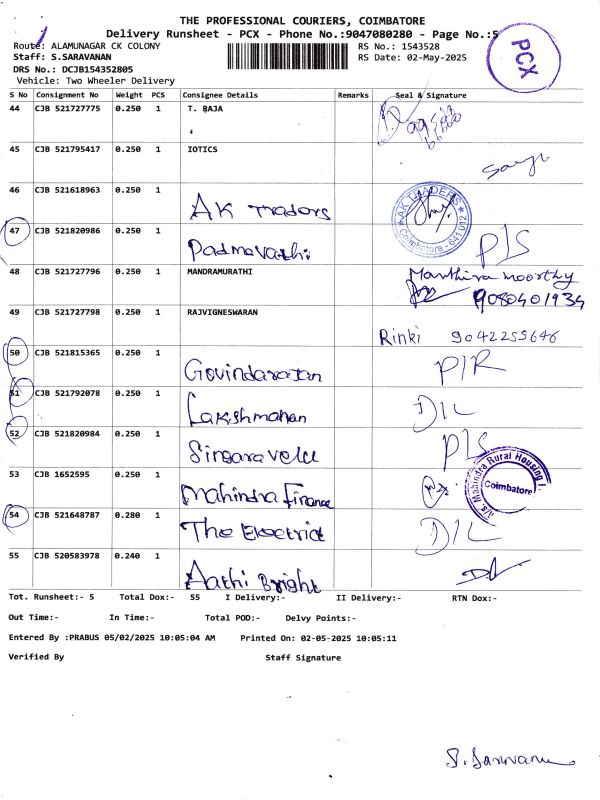 THE PROFESSIONAL COURIERS, COIMBATORE
Delivery Runsheet - PCX - Phone No.:9047080280 - Page No.:5
PCX
Route: ALAMUNAGAR CK COLONY
RS No.: 1543528
Staff: S.SARAVANAN
RS Date: 02-May-2025
DRS No.: DCJB154352805
Vehicle: Two Wheeler Delivery
S No Consignment No Weight PCS Consignee Details Remarks Seal & Signature
44 CJB 521727775 0.250 1 T. BAJA
45 CJB 521795417 0.250 1 IOTICS
46 CJB 521618963 0.250 1 AK Tradors AK TRADERS Coimbatore - 641 012
47 CJB 521820986 0.250 1 Padmavathi P/S
48 CJB 521727796 0.250 1 MANDRAMURATHI Manthira moorthy
9080401934
49 CJB 521727798 0.250 1 RAJVIGNESWARAN Rinki 9042255646
50 CJB 521815365 0.250 1 Govindarajan P/R
51 CJB 521792078 0.250 1 Lakshmanan D/L
52 CJB 521820984 0.250 1 Singaravelu P/S
53 CJB 1652595 0.250 1 Mahindra Finance M/s Mahindra Rural Housing F. Coimbatore
54 CJB 521648787 0.280 1 The Electric D/L
55 CJB 520583978 0.240 1 Aathi Bright
Tot. Runsheet:- 5 Total Dox:- 55 I Delivery:- II Delivery:- RTN Dox:-
Out Time:- In Time:- Total POD:- Delvy Points:-
Entered By :PRABUS 05/02/2025 10:05:04 AM Printed On: 02-05-2025 10:05:11
Verified By Staff Signature
S. Saravanan